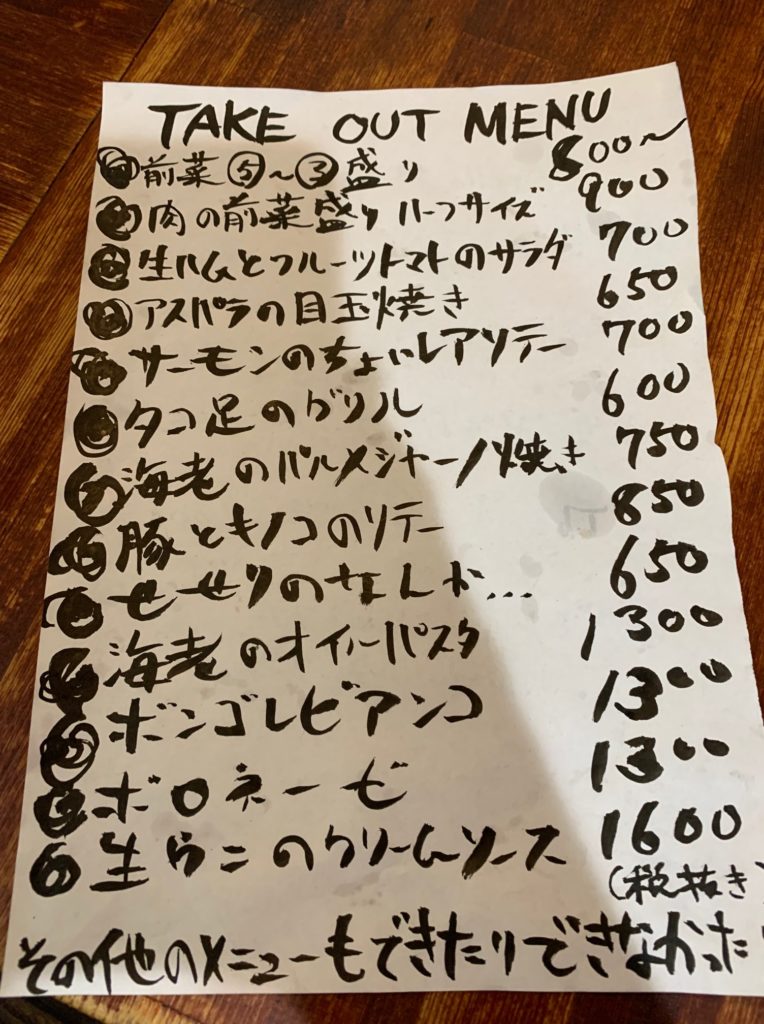 TAKE OUT MENU
前菜⑤~③盛り 800~
肉の前菜盛り ハーフサイズ 900
生ハムとフルーツトマトのサラダ 700
アスパラの目玉焼き 650
サーモンのちょいレアソテー 700
タコ足のグリル 600
海老のパルメジャーノ焼き 750
豚とキノコのソテー 850
せせりのなんか... 650
海老のオイルパスタ 1300
ボンゴレビアンコ 1300
ボロネーゼ 1300
生ウニのクリームソース 1600
(税抜き)
その他のメニューもできたりできなかったり